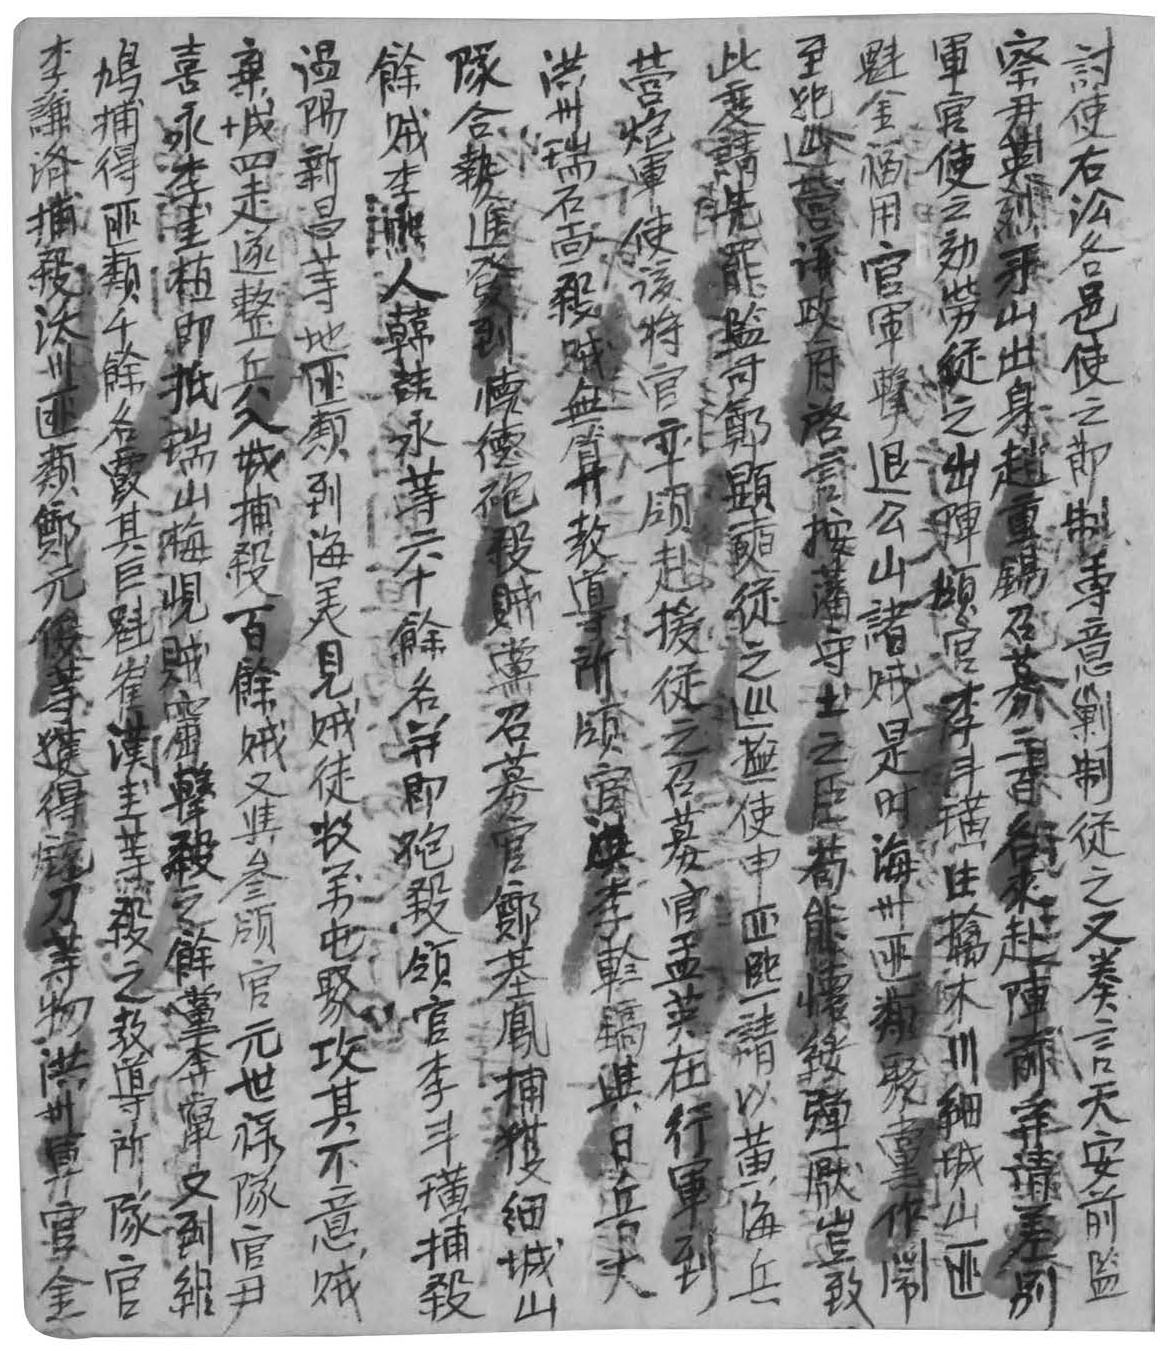 討使右沿各邑使之節制專意剿制從之又奏言天安前監
察尹英烈牙山出身趙重錫召募三百名來赴陣前幷請差別
軍官使之効勞從之出陣領官李斗璜生擒木川細城山匪
魁金福用官軍擊退公山諸賊是時海州匪類聚黨作鬧
至犯巡營議政府啓言按藩守土之臣苟能懷綏彈厭豈致
此變請先罷監司鄭顯奭從之巡撫使申正熙請以黃海兵
營炮軍使該將官率領赴援從之召募官孟英在行軍到
洪州瑞石面殺賊無算教導所領官洪李軫鎬與日兵大
隊合勢進發到懷德砲殺賊黨召募官鄭基鳳捕獲細城山
餘賊李熙人韓喆永等六十餘名幷即砲殺領官李斗璜捕殺
溫陽新昌等地匪類到海美見賊徒收弟屯聚攻其不意賊
棄城四走遂整兵入城捕殺百餘賊又與參領官元世祿隊官尹
喜永李圭植即抵瑞山梅峴賊窟擊殺之餘黨奔竄又到維
鳩捕得匪類千餘名覈其巨魁崔漢圭等殺之教導所隊官
李謙洛捕殺沃川匪類鄭元俊等獲得銃刀等物洪州軍官金